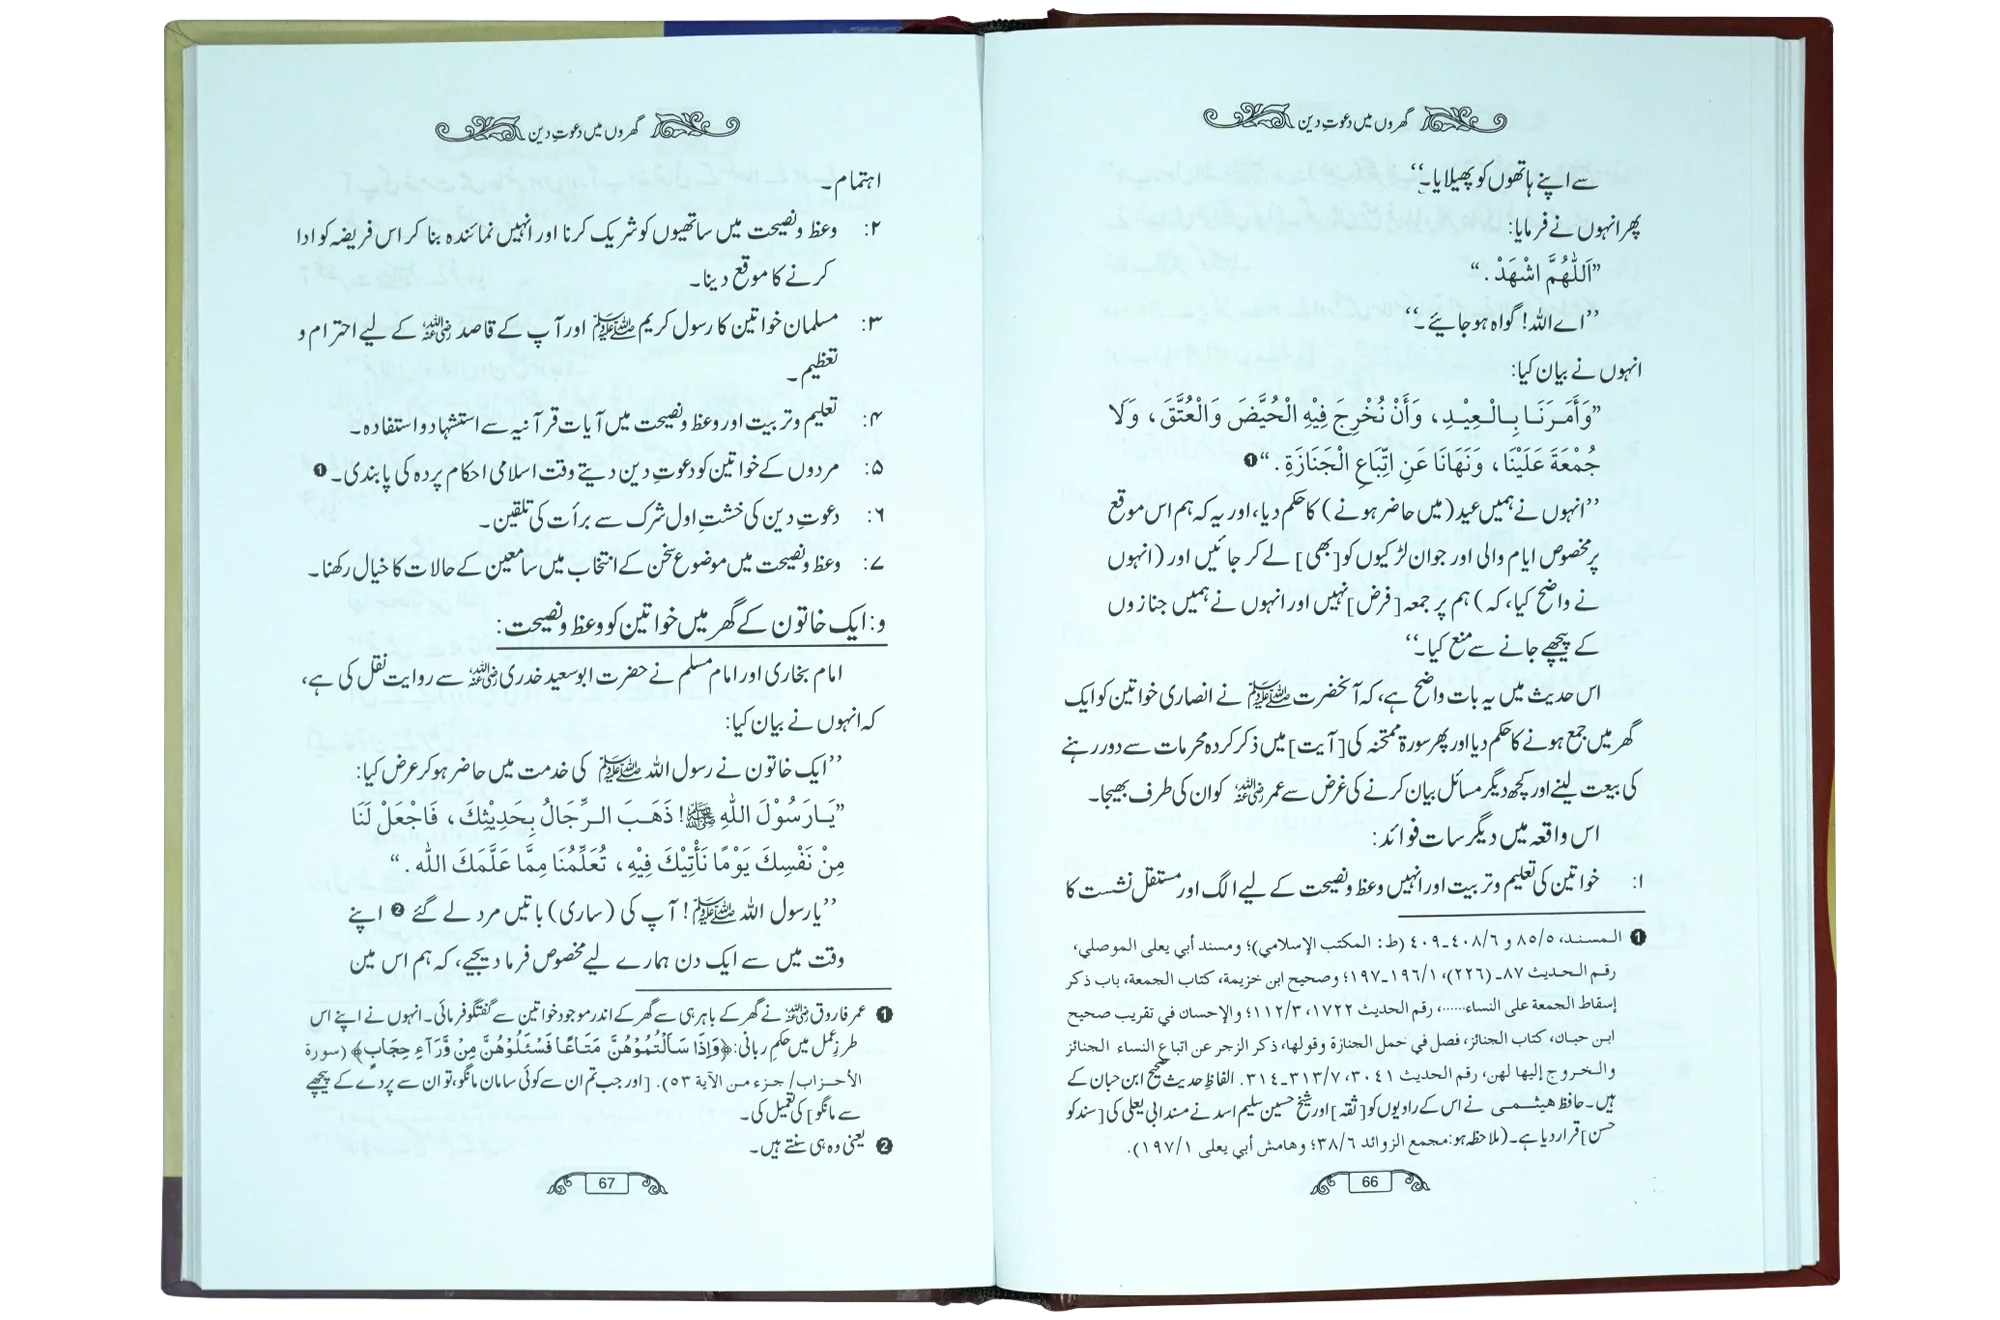 گھروں میں دعوتِ دین
سے اپنے ہاتھوں کو پھیلایا۔‘‘
پھر انہوں نے فرمایا:
’’اَللّٰهُمَّ اشْهَدْ .‘‘
’’اے اللہ! گواہ ہو جایئے۔‘‘
انہوں نے بیان کیا:
’’وَأَمَرَنَا بِالْعِيْدِ، وَأَنْ نُخْرِجَ فِيْهِ الْحُيَّضَ وَالْعُتَّقَ، وَلَا
جُمْعَةَ عَلَيْنَا، وَنَهَانَا عَنِ اتِّبَاعِ الْجَنَازَةِ .‘‘ ❶
’’انہوں نے ہمیں عید (میں حاضر ہونے) کا حکم دیا، اور یہ کہ ہم اس موقع
پر مخصوص ایام والی اور جوان لڑکیوں کو [بھی] لے کر جائیں اور (انہوں
نے واضح کیا، کہ) ہم پر جمعہ [فرض] نہیں اور انہوں نے ہمیں جنازوں
کے پیچھے جانے سے منع کیا۔‘‘
اس حدیث میں یہ بات واضح ہے، کہ آنحضرت ﷺ نے انصاری خواتین کو ایک
گھر میں جمع ہونے کا حکم دیا اور پھر سورۃ ممتحنہ کی [آیت] میں ذکر کردہ محرمات سے دور رہنے
کی بیعت لینے اور کچھ دیگر مسائل بیان کرنے کی غرض سے عمر رضی اللہ عنہ کو ان کی طرف بھیجا۔
اس واقعہ میں دیگر سات فوائد:
۱: خواتین کی تعلیم و تربیت اور انہیں وعظ و نصیحت کے لیے الگ اور مستقل نشست کا
❶ المسند، ٨٥/٥ و ٤٠٨/٦ـ٤٠٩ (ط: المكتب الإسلامي)؛ ومسند أبي يعلى الموصلي،
رقم الحديث ٨٧ـ (٢٢٦)، ١٩٦/١ـ١٩٧؛ وصحيح ابن خزيمة، كتاب الجمعة، باب ذكر
إسقاط الجمعة على النساء......، رقم الحديث ١٧٢٢، ١١٢/٣؛ والإحسان في تقريب صحيح
ابن حبان، كتاب الجنائز، فصل في حمل الجنازة وقولها، ذكر الزجر عن اتباع النساء الجنائز
والخروج إليها لهن، رقم الحديث ٣٠٤١، ٣١٣/٧ـ٣١٤. الفاظِ حدیث صحیح ابن حبان کے
ہیں۔ حافظ ھیثمی نے اس کے راویوں کو [ثقہ] اور شیخ حسین سلیم اسد نے مسند ابی یعلی کی [سند کو
حسن] قرار دیا ہے۔ (ملاحظہ ہو: مجمع الزوائد ٣٨/٦؛ وهامش أبي يعلى ١٩٧/١).
66
گھروں میں دعوتِ دین
اہتمام۔
۲: وعظ و نصیحت میں ساتھیوں کو شریک کرنا اور انہیں نمائندہ بنا کر اس فریضہ کو ادا
کرنے کا موقع دینا۔
۳: مسلمان خواتین کا رسول کریم ﷺ اور آپ کے قاصد رضی اللہ عنہ کے لیے احترام و
تعظیم۔
۴: تعلیم و تربیت اور وعظ و نصیحت میں آیات قرآنیہ سے استشہاد و استفادہ۔
۵: مردوں کے خواتین کو دعوتِ دین دیتے وقت اسلامی احکام پردہ کی پابندی۔ ❶
۶: دعوتِ دین کی خشتِ اول شرک سے برأت کی تلقین۔
۷: وعظ و نصیحت میں موضوع سخن کے انتخاب میں سامعین کے حالات کا خیال رکھنا۔
و: ایک خاتون کے گھر میں خواتین کو وعظ و نصیحت:
امام بخاری اور امام مسلم نے حضرت ابو سعید خدری رضی اللہ عنہ سے روایت نقل کی ہے،
کہ انہوں نے بیان کیا:
’’ایک خاتون نے رسول اللہ ﷺ کی خدمت میں حاضر ہو کر عرض کیا:
’’يَارَسُوْلَ اللهِ ﷺ! ذَهَبَ الرِّجَالُ بِحَدِيْثِكَ، فَاجْعَلْ لَنَا
مِنْ نَفْسِكَ يَوْمًا نَأْتِيْكَ فِيْهِ، تُعَلِّمُنَا مِمَّا عَلَّمَكَ الله .‘‘
’’یا رسول اللہ ﷺ! آپ کی (ساری) باتیں مرد لے گئے ❷ اپنے
وقت میں سے ایک دن ہمارے لیے مخصوص فرما دیجیے، کہ ہم اس مین
❶ عمر فاروق رضی اللہ عنہ نے گھر کے باہر ہی سے گھر کے اندر موجود خواتین سے گفتگو فرمائی۔ انہوں نے اپنے اس
طرزِ عمل میں حکمِ ربانی: ﴿وَإِذَا سَأَلْتُمُوْهُنَّ مَتَاعًا فَسْئَلُوْهُنَّ مِنْ وَّرَآءِ حِجَابٍ﴾ (سورة
الأحزاب/ جزء من الآية ٥٣). [اور جب تم ان سے کوئی سامان مانگو، تو ان سے پردے کے پیچھے
سے مانگو] کی تعمیل کی۔
❷ یعنی وہ ہی سنتے ہیں۔
67